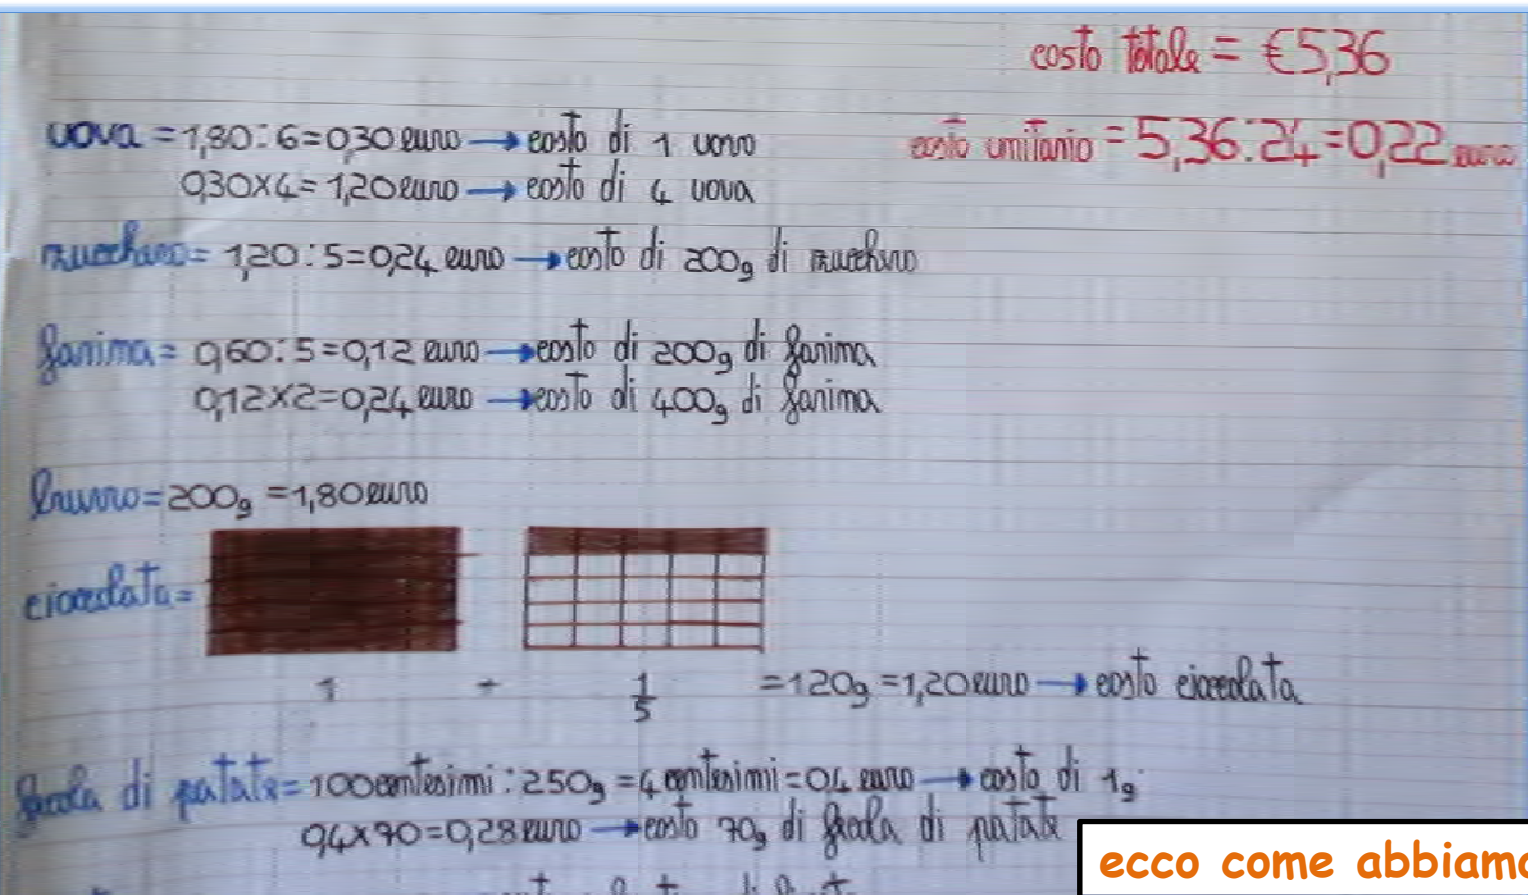 costo totale = €5,36
uova = 1,80 : 6 = 0,30 euro → costo di 1 uovo
costo unitario = 5,36 : 24 = 0,22 euro
0,30 x 4 = 1,20 euro → costo di 4 uova
zucchero = 1,20 : 5 = 0,24 euro → costo di 200g di zucchero
farina = 0,60 : 5 = 0,12 euro → costo di 200g di farina
0,12 x 2 = 0,24 euro → costo di 400g di farina
burro = 200g = 1,80 euro
cioccolata =
1 + 1/5 = 120g = 1,20 euro → costo cioccolata
fecola di patate = 100 centesimi : 250g = 4 centesimi = 0,4 euro → costo di 1g
0,4 x 70 = 0,28 euro → costo 70g di fecola di patate
ecco come abbiamo